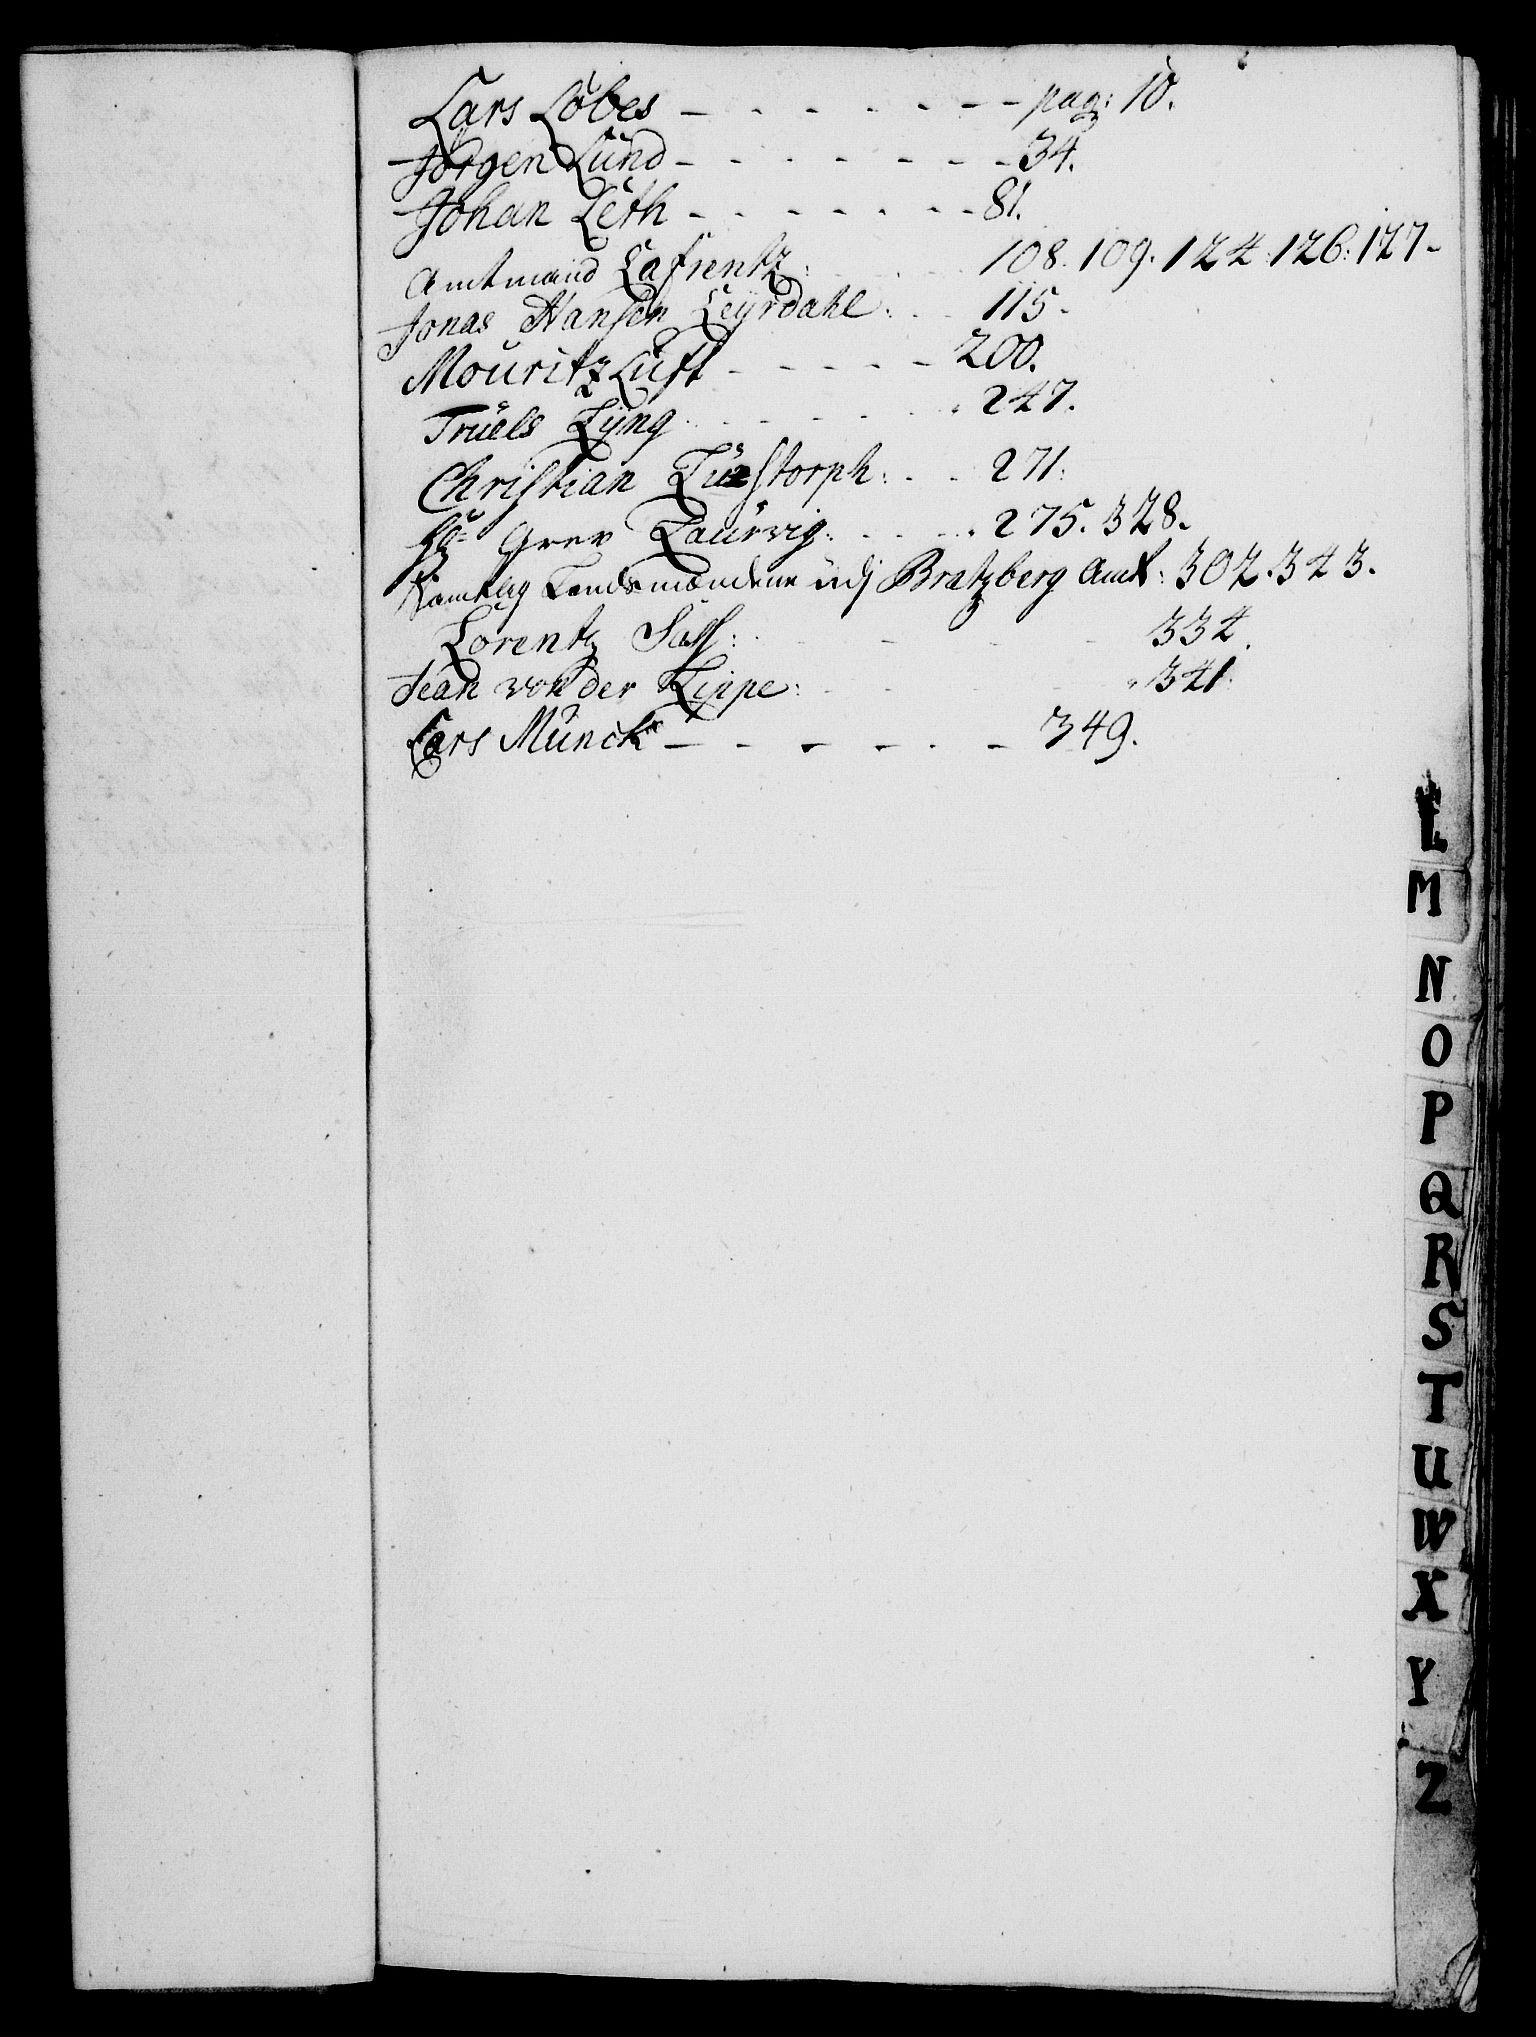 Lars Löbes - - - - - - - - pag: 10.
Jörgen Lünd - - - - - - - - 34.
Johan Leth - - - - - - - 81.
Amtmand Lafrentz: - - - 108. 109. 124. 126. 127-
Jonas Hansen Leyrdahl: - - 115.
Mouritz Lüft - - - - - 200.
Trüels Lÿng - - - - - - 247.
Christian Lüstorph: - - 271:
Hr Grev Laürvig: - - - 275. 328.
Samtlig Lends mændene üdj Bratzberg Amt: 302. 343.
Lorentz: - - - - 334.
Jean von der Lippe: - - - - 341:
Lars Münck - - - - - - 349.
L
M
N
O
P
Q
R
S
T
U
W
X
Y
Z